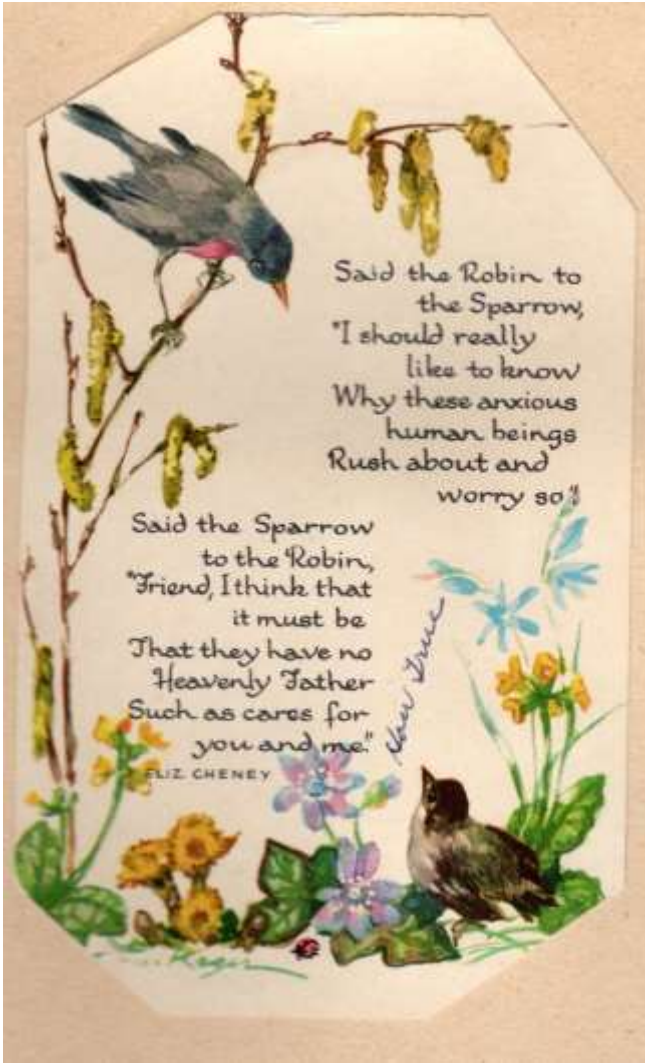 Said the Robin to
the Sparrow,
"I should really
like to know
Why these anxious
human beings
Rush about and
worry so."
Said the Sparrow
to the Robin,
"Friend, I think that
it must be
That they have no
Heavenly Father
Such as cares for
you and me."
ELIZ. CHENEY
How True